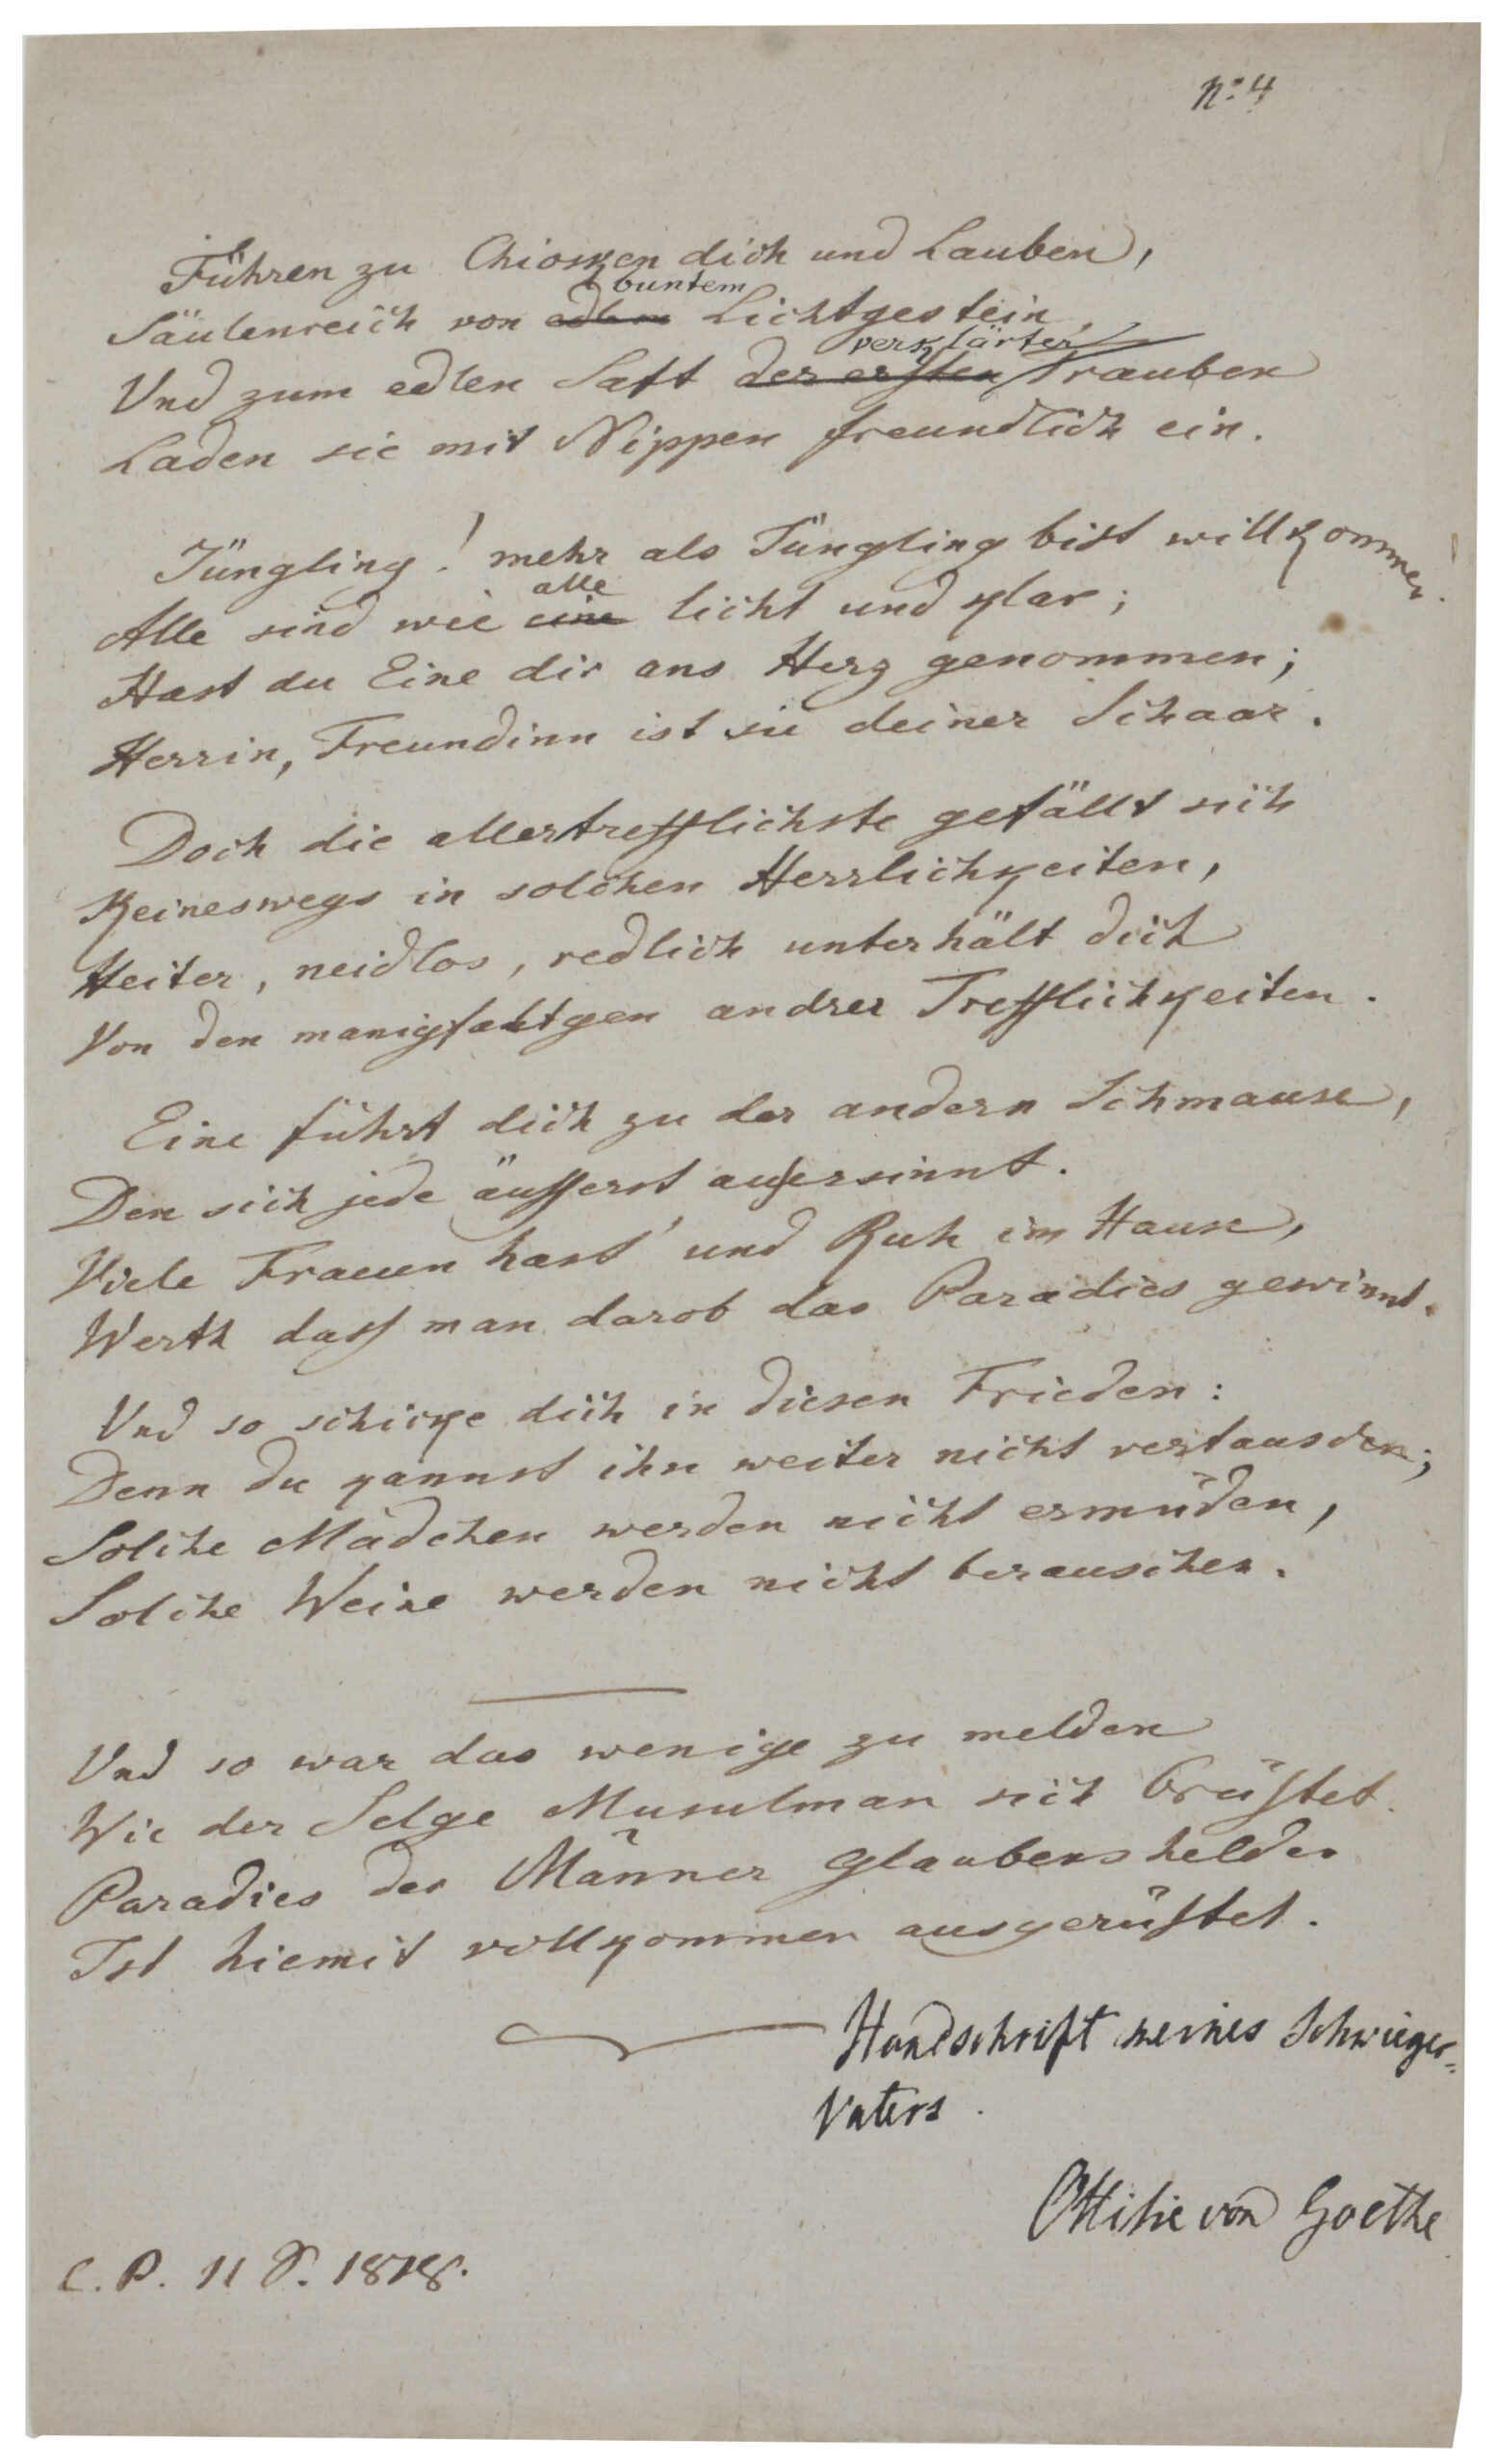 No: 4
Führen zu Chiosken dich und Lauben,
buntem
Säulenreich von edlem Lichtgestein,
verklärter
Und zum edlen Saft der ersten Trauben
Laden sie mit Nippen freundlich ein.
Jüngling! mehr als Jüngling bist willkommen.
alle
Alle sind wie eine licht und klar;
Hast du Eine dir ans Herz genommen;
Herrin, Freundinn ist sie deiner Schaar.
Doch die allertrefflichste gefällt sich
Keineswegs in solchen Herrlichkeiten,
Heiter, neidlos, redlich unterhält dich
Von den manigfaltgen andrer Trefflichkeiten.
Eine führt dich zu der andern Schmause,
Den sich jede äusserst ausersinnt.
Viele Frauen hast' und Ruh im Hause,
Werth dass man darob das Paradies gewinnt.
Und so schicke dich in diesen Frieden:
Denn du kannst ihn weiter nicht vertauschen;
Solche Mädchen werden nicht ermüden,
Solche Weine werden nicht berauschen.
Und so war das wenige zu melden
Wie der Selge Musulman sich brüstet.
Paradies der Männer Glaubenshelden
Ist hiemit vollkommen ausgerüstet.
Handschrift meines Schwieger=
Vaters.
Ottilie von Goethe
C. P. 11 S. 1818.